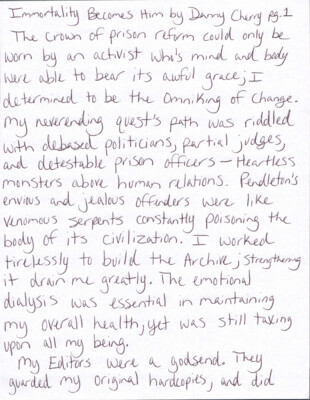 Immortality Becomes Him by Danny Cherry pg.1
The crown of prison reform could only be
worn by an activist who's mind and body
were able to bear its awful grace; I
determined to be the Omniking of Change.
My neverending quest's path was riddled
with debased politicians, partial judges,
and detestable prison officers — Heartless
monsters above human relations. Pendleton's
envious and jealous offenders were like
venomous serpents constantly poisoning the
body of its civilization. I worked
tirelessly to build the Archive; strengthening
it drain me greatly. The emotional
dialysis was essential in maintaining
my overall health, yet was still taxing
upon all my being.
My Editors were a godsend. They
guarded my original hardcopies, and did